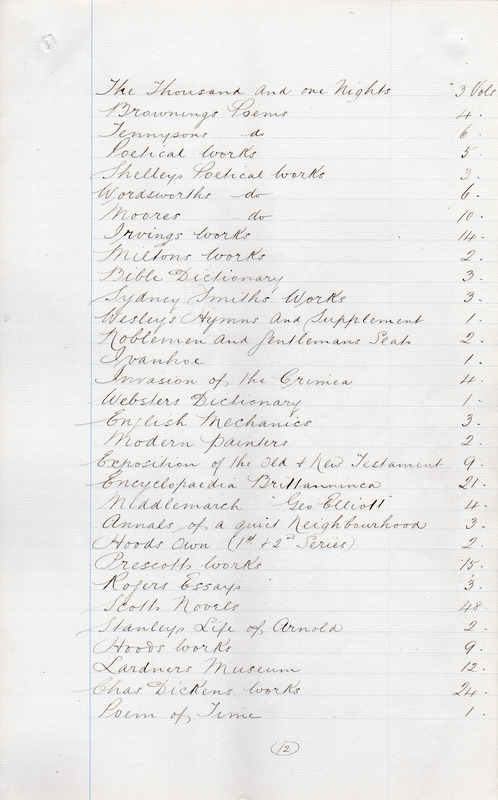 The Thousand and one Nights 3 Vols
Brownings Poems 4.
Tennysons do 6.
Poetical Works 5.
Shelleys Poetical Works 3.
Wordsworths do 6.
Moores do 10.
Irvings Works 14.
Miltons Works 2.
Bible Dictionary 3.
Sydney Smiths Works 3.
Wesleys Hymns and Supplement 1.
Noblemen and Gentlemans Seats 2.
Ivanhoe 1.
Invasion of the Crimea 4.
Websters Dictionary 1.
English Mechanics 3.
Modern Painters 2.
Exposition of the Old & New Testament 9.
Encyclopaedia Brittanninca 21.
Middlemarch "Geo Elliott" 4.
Annals of a quiet Neighbourhood 3.
Hoods Own (1st & 2nd Series) 2.
Prescotts Works 15.
Rogers Essays 3.
Scotts Novels 48.
Stanleys Life of Arnold 2.
Hoods Works 9.
Lardners Museum 12.
Chas Dickens Works 24.
Poem of Time 1.
(12)